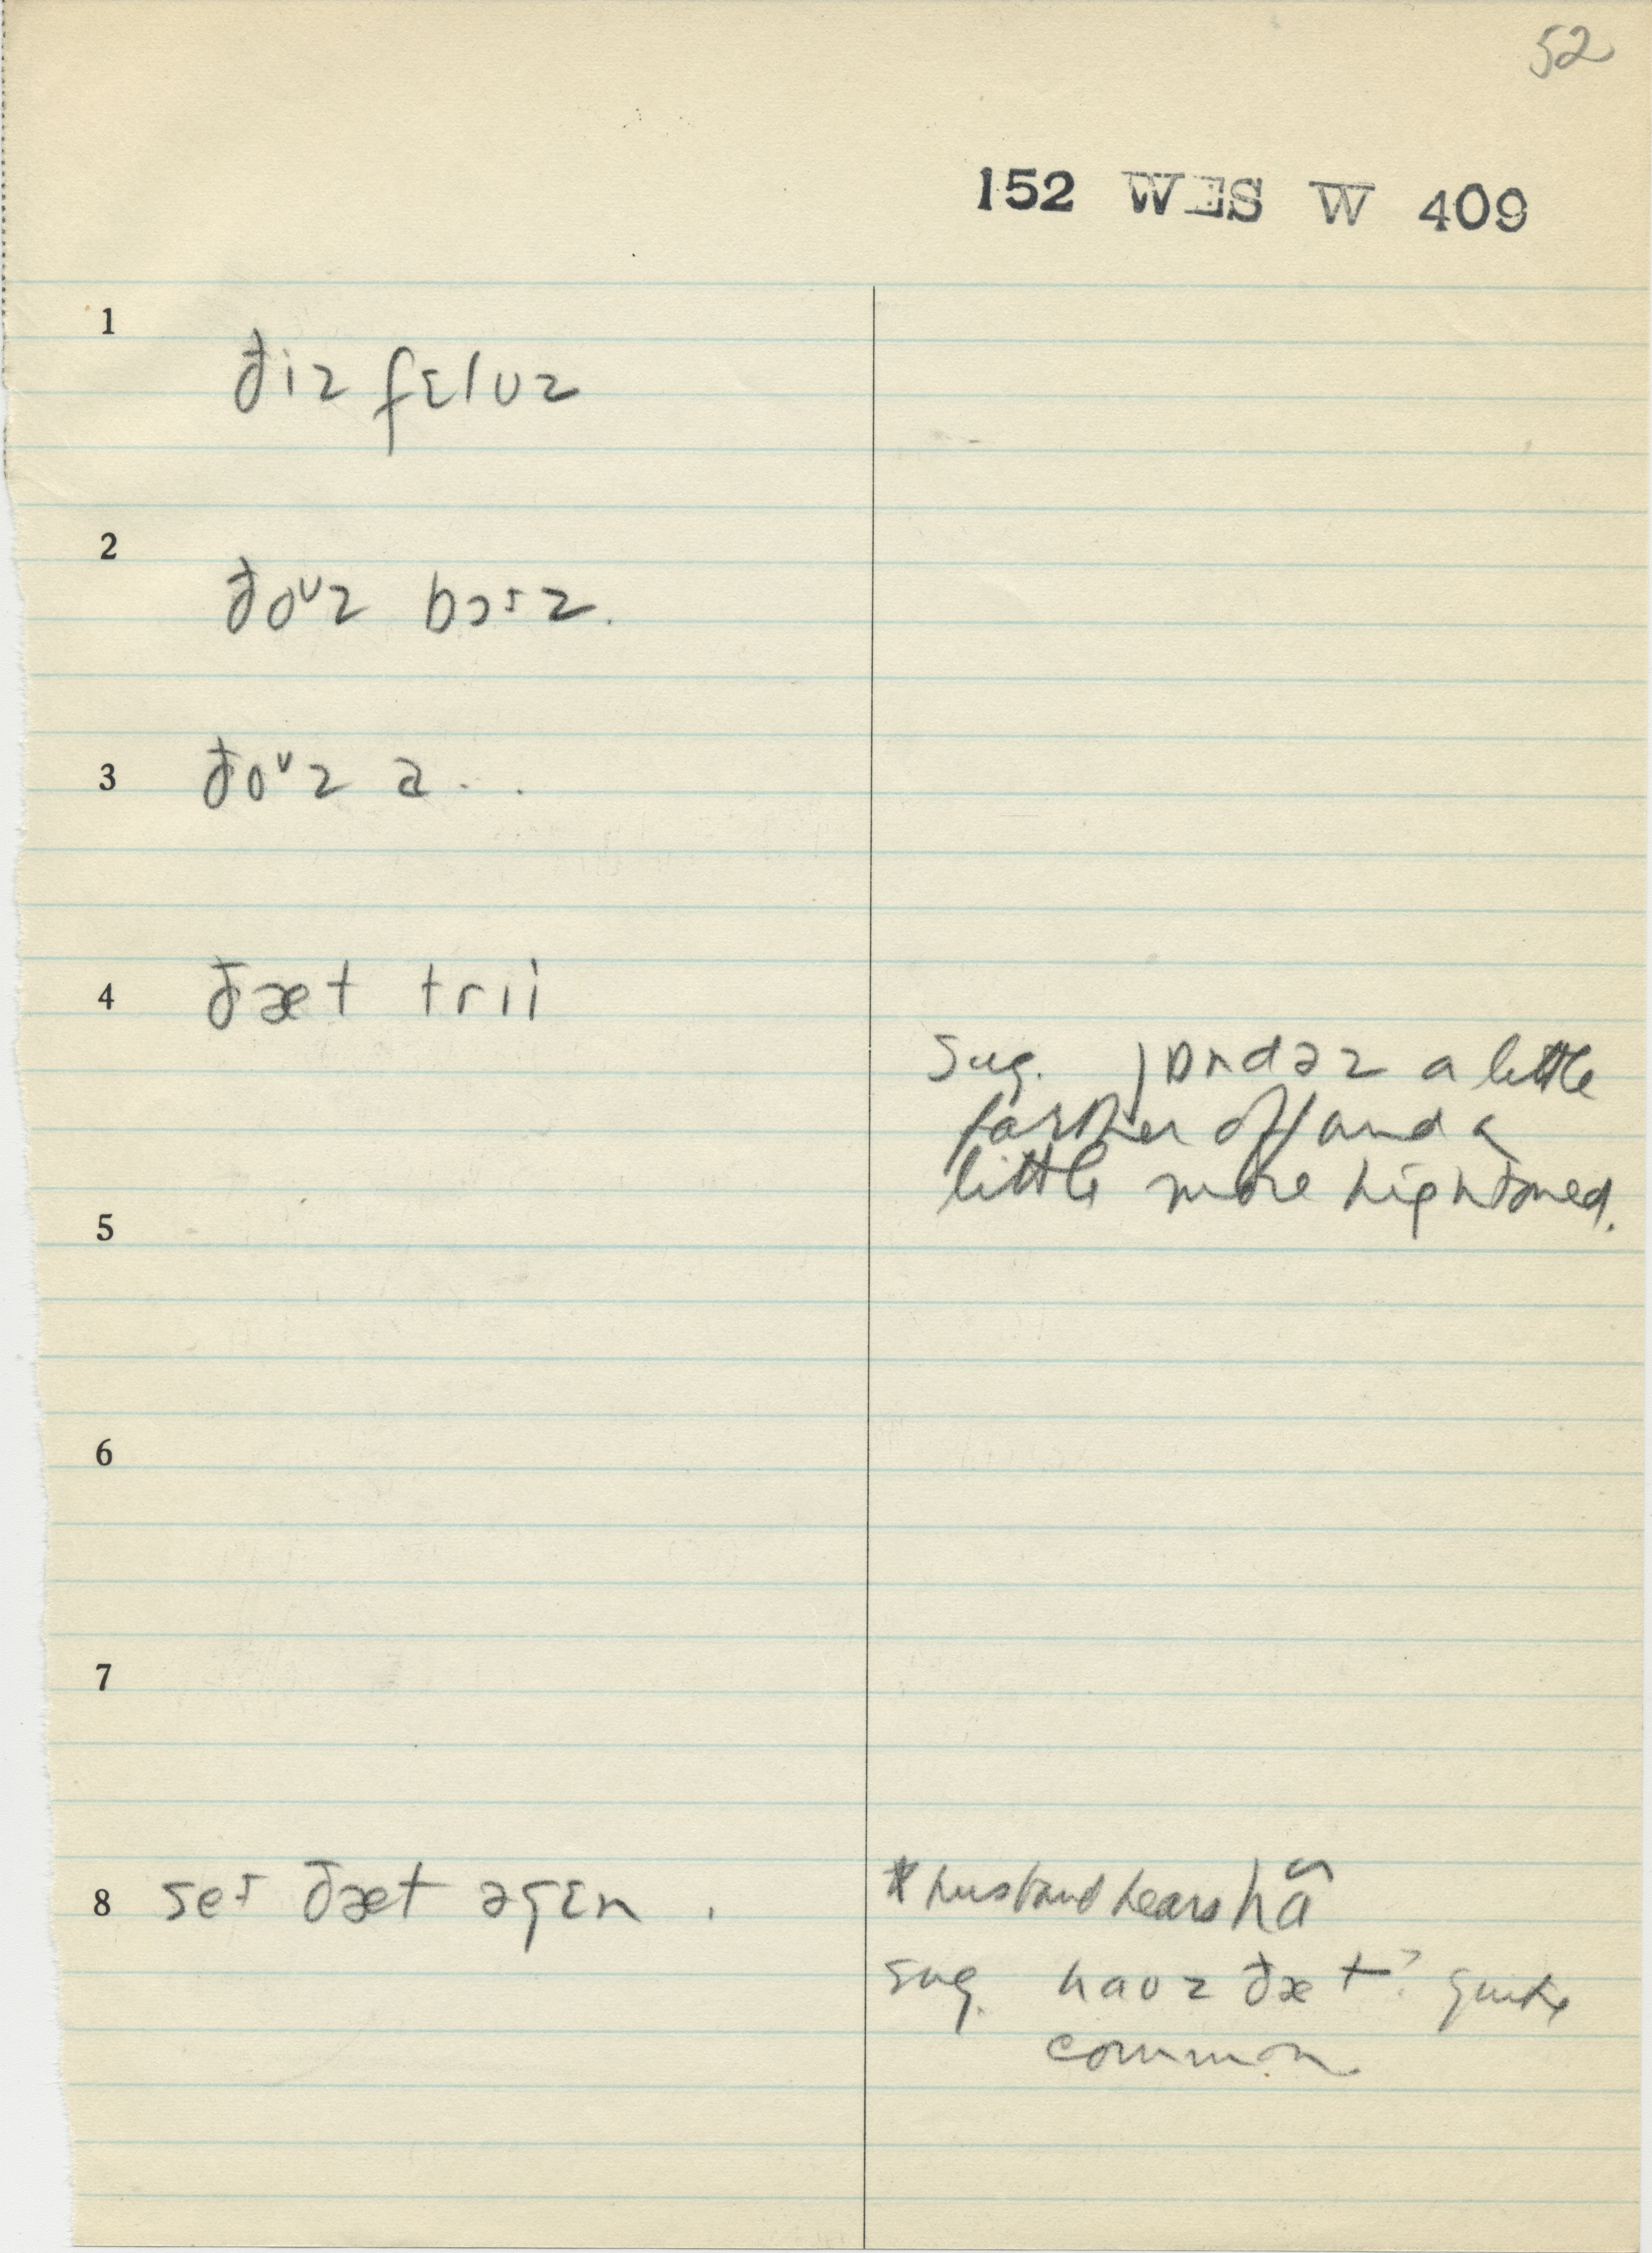 52
152 WES W 409
1
ðiz fɛluz
2
ðoᵁz bɔɪz.
3 ðoᵁz ə . .
4 ðæt trıi
sug. jɒndəz a little
farther off and a
little more hightoned.
5
6
7
8 seɪ ðæt əgɛn .
* husband hears hã
sug. hauz ðæt? quite
common